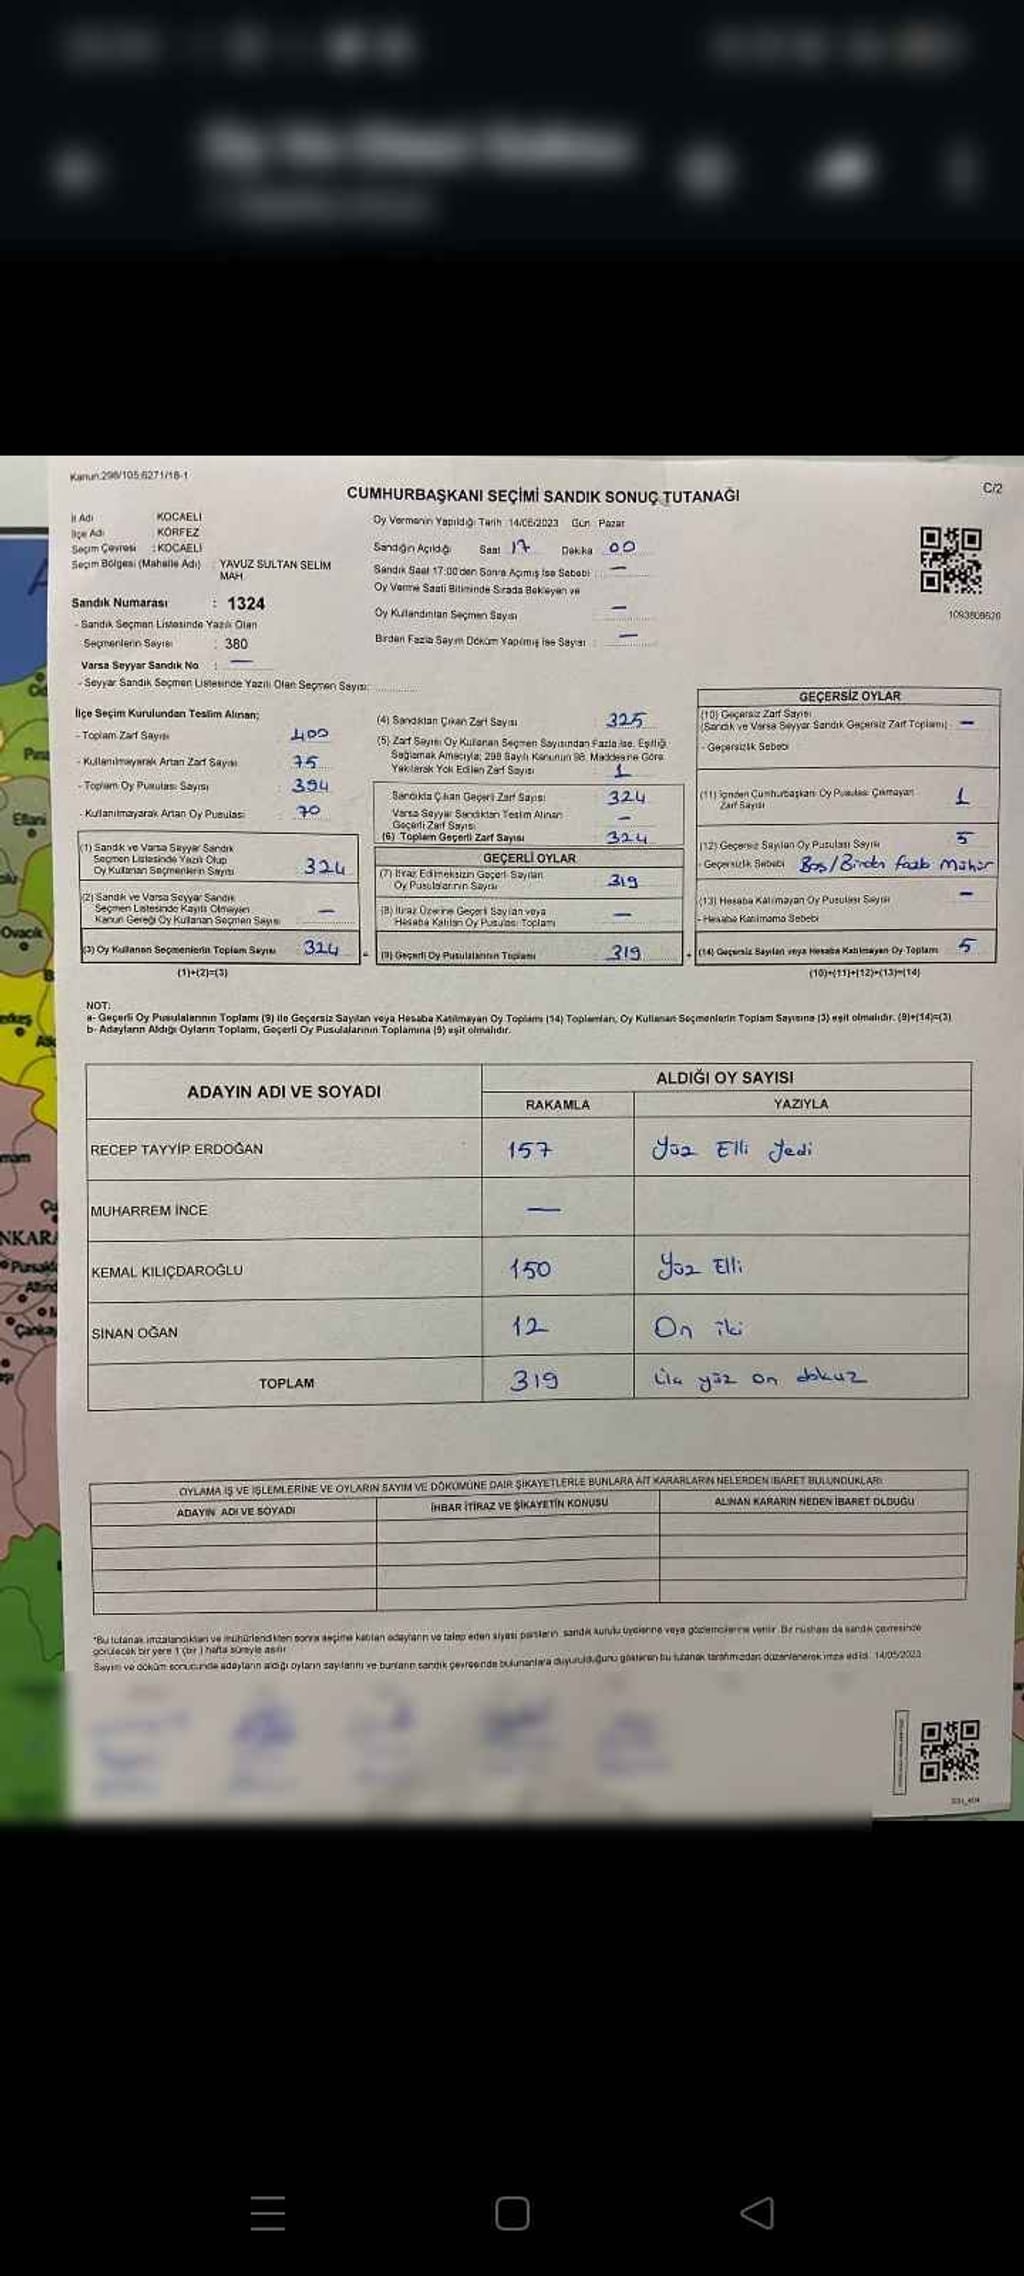 Kanun:298/105;6271/18-1
C/2
CUMHURBAŞKANI SEÇİMİ SANDIK SONUÇ TUTANAĞI
İl Adı KOCAELİ
İlçe Adı KÖRFEZ
Seçim Çevresi : KOCAELİ
Seçim Bölgesi (Mahalle Adı) : YAVUZ SULTAN SELİM
MAH.
Sandık Numarası : 1324
- Sandık Seçmen Listesinde Yazılı Olan
Seçmenlerin Sayısı : 380
Varsa Seyyar Sandık No : —
- Seyyar Sandık Seçmen Listesinde Yazılı Olan Seçmen Sayısı: ............
Oy Vermenin Yapıldığı Tarih 14/05/2023 Gün Pazar
Sandığın Açıldığı Saat 17 Dakika 00
Sandık Saat 17:00'den Sonra Açılmış İse Sebebi : —
Oy Verme Saati Bitiminde Sırada Bekleyen ve
Oy Kullandırılan Seçmen Sayısı —
Birden Fazla Sayım Döküm Yapılmış İse Sayısı : —
1093809520
İlçe Seçim Kurulundan Teslim Alınan;
- Toplam Zarf Sayısı 400
- Kullanılmayarak Artan Zarf Sayısı 75
- Toplam Oy Pusulası Sayısı : 394
- Kullanılmayarak Artan Oy Pusulası : 70
(1) Sandık ve Varsa Seyyar Sandık
Seçmen Listesinde Yazılı Olup
Oy Kullanan Seçmenlerin Sayısı 324
(2) Sandık ve Varsa Seyyar Sandık
Seçmen Listesinde Kayıtlı Olmayan
Kanun Gereği Oy Kullanan Seçmen Sayısı —
(3) Oy Kullanan Seçmenlerin Toplam Sayısı 324
(1)+(2)=(3)
(4) Sandıktan Çıkan Zarf Sayısı 325
(5) Zarf Sayısı Oy Kullanan Seçmen Sayısından Fazla İse, Eşitliği
Sağlamak Amacıyla; 298 Sayılı Kanunun 98. Maddesine Göre
Yakılarak Yok Edilen Zarf Sayısı 1
Sandıkta Çıkan Geçerli Zarf Sayısı 324
Varsa Seyyar Sandıktan Teslim Alınan
Geçerli Zarf Sayısı —
(6) Toplam Geçerli Zarf Sayısı 324
GEÇERLİ OYLAR
(7) İtiraz Edilmeksizin Geçerli Sayılan
Oy Pusulalarının Sayısı 319
(8) İtiraz Üzerine Geçerli Sayılan veya
Hesaba Katılan Oy Pusulası Toplamı —
= (9) Geçerli Oy Pusulalarının Toplamı 319
GEÇERSİZ OYLAR
(10) Geçersiz Zarf Sayısı
(Sandık ve Varsa Seyyar Sandık Geçersiz Zarf Toplamı) —
- Geçersizlik Sebebi
(11) İçinden Cumhurbaşkanı Oy Pusulası Çıkmayan
Zarf Sayısı 1
(12) Geçersiz Sayılan Oy Pusulası Sayısı 5
- Geçersizlik Sebebi Boş/Birden fazla Mühür
(13) Hesaba Katılmayan Oy Pusulası Sayısı —
- Hesaba Katılmama Sebebi
+ (14) Geçersiz Sayılan veya Hesaba Katılmayan Oy Toplamı 5
(10)+(11)+(12)+(13)=(14)
NOT:
a- Geçerli Oy Pusulalarının Toplamı (9) ile Geçersiz Sayılan veya Hesaba Katılmayan Oy Toplamı (14) Toplamları, Oy Kullanan Seçmenlerin Toplam Sayısına (3) eşit olmalıdır. (9)+(14)=(3)
b- Adayların Aldığı Oyların Toplamı, Geçerli Oy Pusulalarının Toplamına (9) eşit olmalıdır.
ADAYIN ADI VE SOYADI ALDIĞI OY SAYISI
RAKAMLA YAZIYLA
RECEP TAYYİP ERDOĞAN 157 Yüz Elli Yedi
MUHARREM İNCE —
KEMAL KILIÇDAROĞLU 150 Yüz Elli
SİNAN OĞAN 12 On iki
TOPLAM 319 yüz on dokuz
OYLAMA İŞ VE İŞLEMLERİNE VE OYLARIN SAYIM VE DÖKÜMÜNE DAİR ŞİKAYETLERLE BUNLARA AİT KARARLARIN NELERDEN İBARET BULUNDUKLARI
ADAYIN ADI VE SOYADI İHBAR İTİRAZ VE ŞİKAYETİN KONUSU ALINAN KARARIN NEDEN İBARET OLDUĞU
*Bu tutanak imzalandıktan ve mühürlendikten sonra seçime katılan adayların ve talep eden siyasi partilerin, sandık kurulu üyelerine veya gözlemcilerine verilir. Bir nüshası da sandık çevresinde
görülecek bir yere 1 (bir) hafta süreyle asılır.
Sayım ve döküm sonucunda adayların aldığı oyların sayılarını ve bunların sandık çevresinde bulunanlara duyurulduğunu gösteren bu tutanak tarafımızdan düzenlenerek imza edildi. 14/05/2023
Ovacık
NKARA